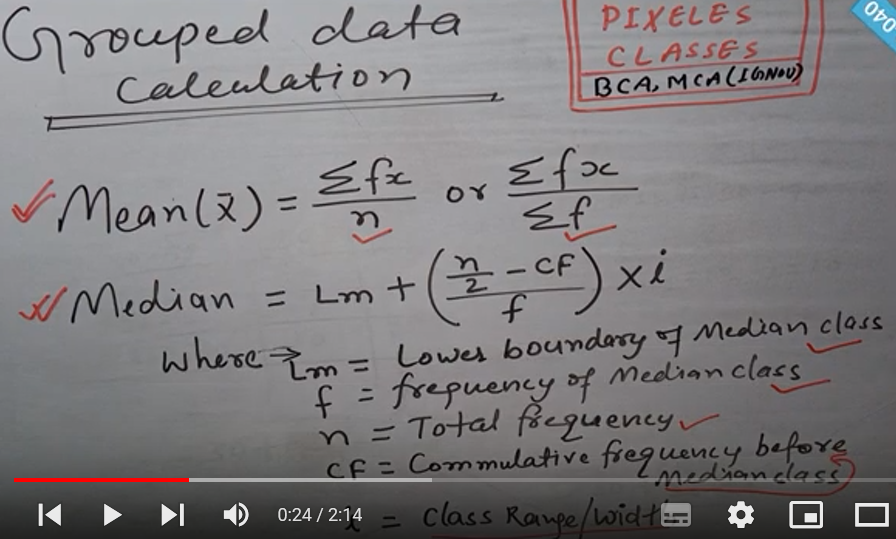 Grouped data
Calculation
PIXELES
CLASSES
BCA, MCA (IGNOU)
040
✓ Mean(x̄) = Σfx/n or Σfx/Σf
✓ Median = Lm + ((n/2 - CF)/f) × i
where → Lm = Lower boundary of Median class
f = frequency of Median class
n = Total frequency
CF = Commulative frequency before
Median class
i = Class Range/width
0:24 / 2:14